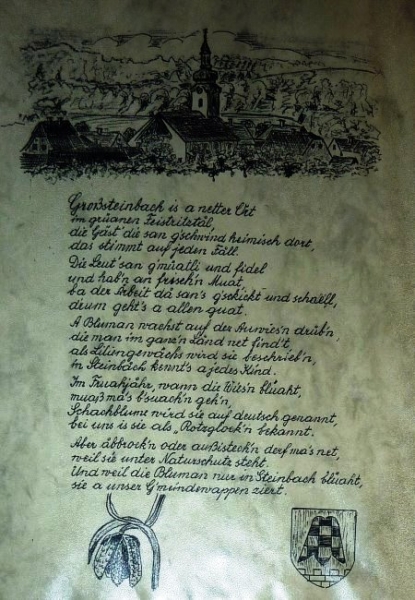 Großsteinbach is a netter Ort
im grüanen Feistritztal,
die Gäst' die san g'schwind heimisch dort,
das stimmt auf jeden Fall.
Die Leut' san g'müatli und fidel
und hab'n an frisch'n Muat,
ba der Arbeit da san's g'schickt und schnell,
drum geht's a allen guat.
A Bluman wachst auf der Auwies'n drüb'n,
die man im ganz'n Land net find't,
als Liliengewächs wird sie beschrieb'n,
in Steinbach kennt's a jedes Kind.
Im Fruahjahr, wann die Wies'n blüaht,
muaß ma's b'suach'n geh'n,
Schachblume wird sie auf deutsch genannt,
bei uns is sie als „Rotzglock'n bekannt.
Aber åbbrock'n oder außistech'n derf ma's net,
weil sie unter Naturschutz steht.
Und weil die Bluman nur in Steinbach blüaht,
sie a unser G'mindewappen ziert.